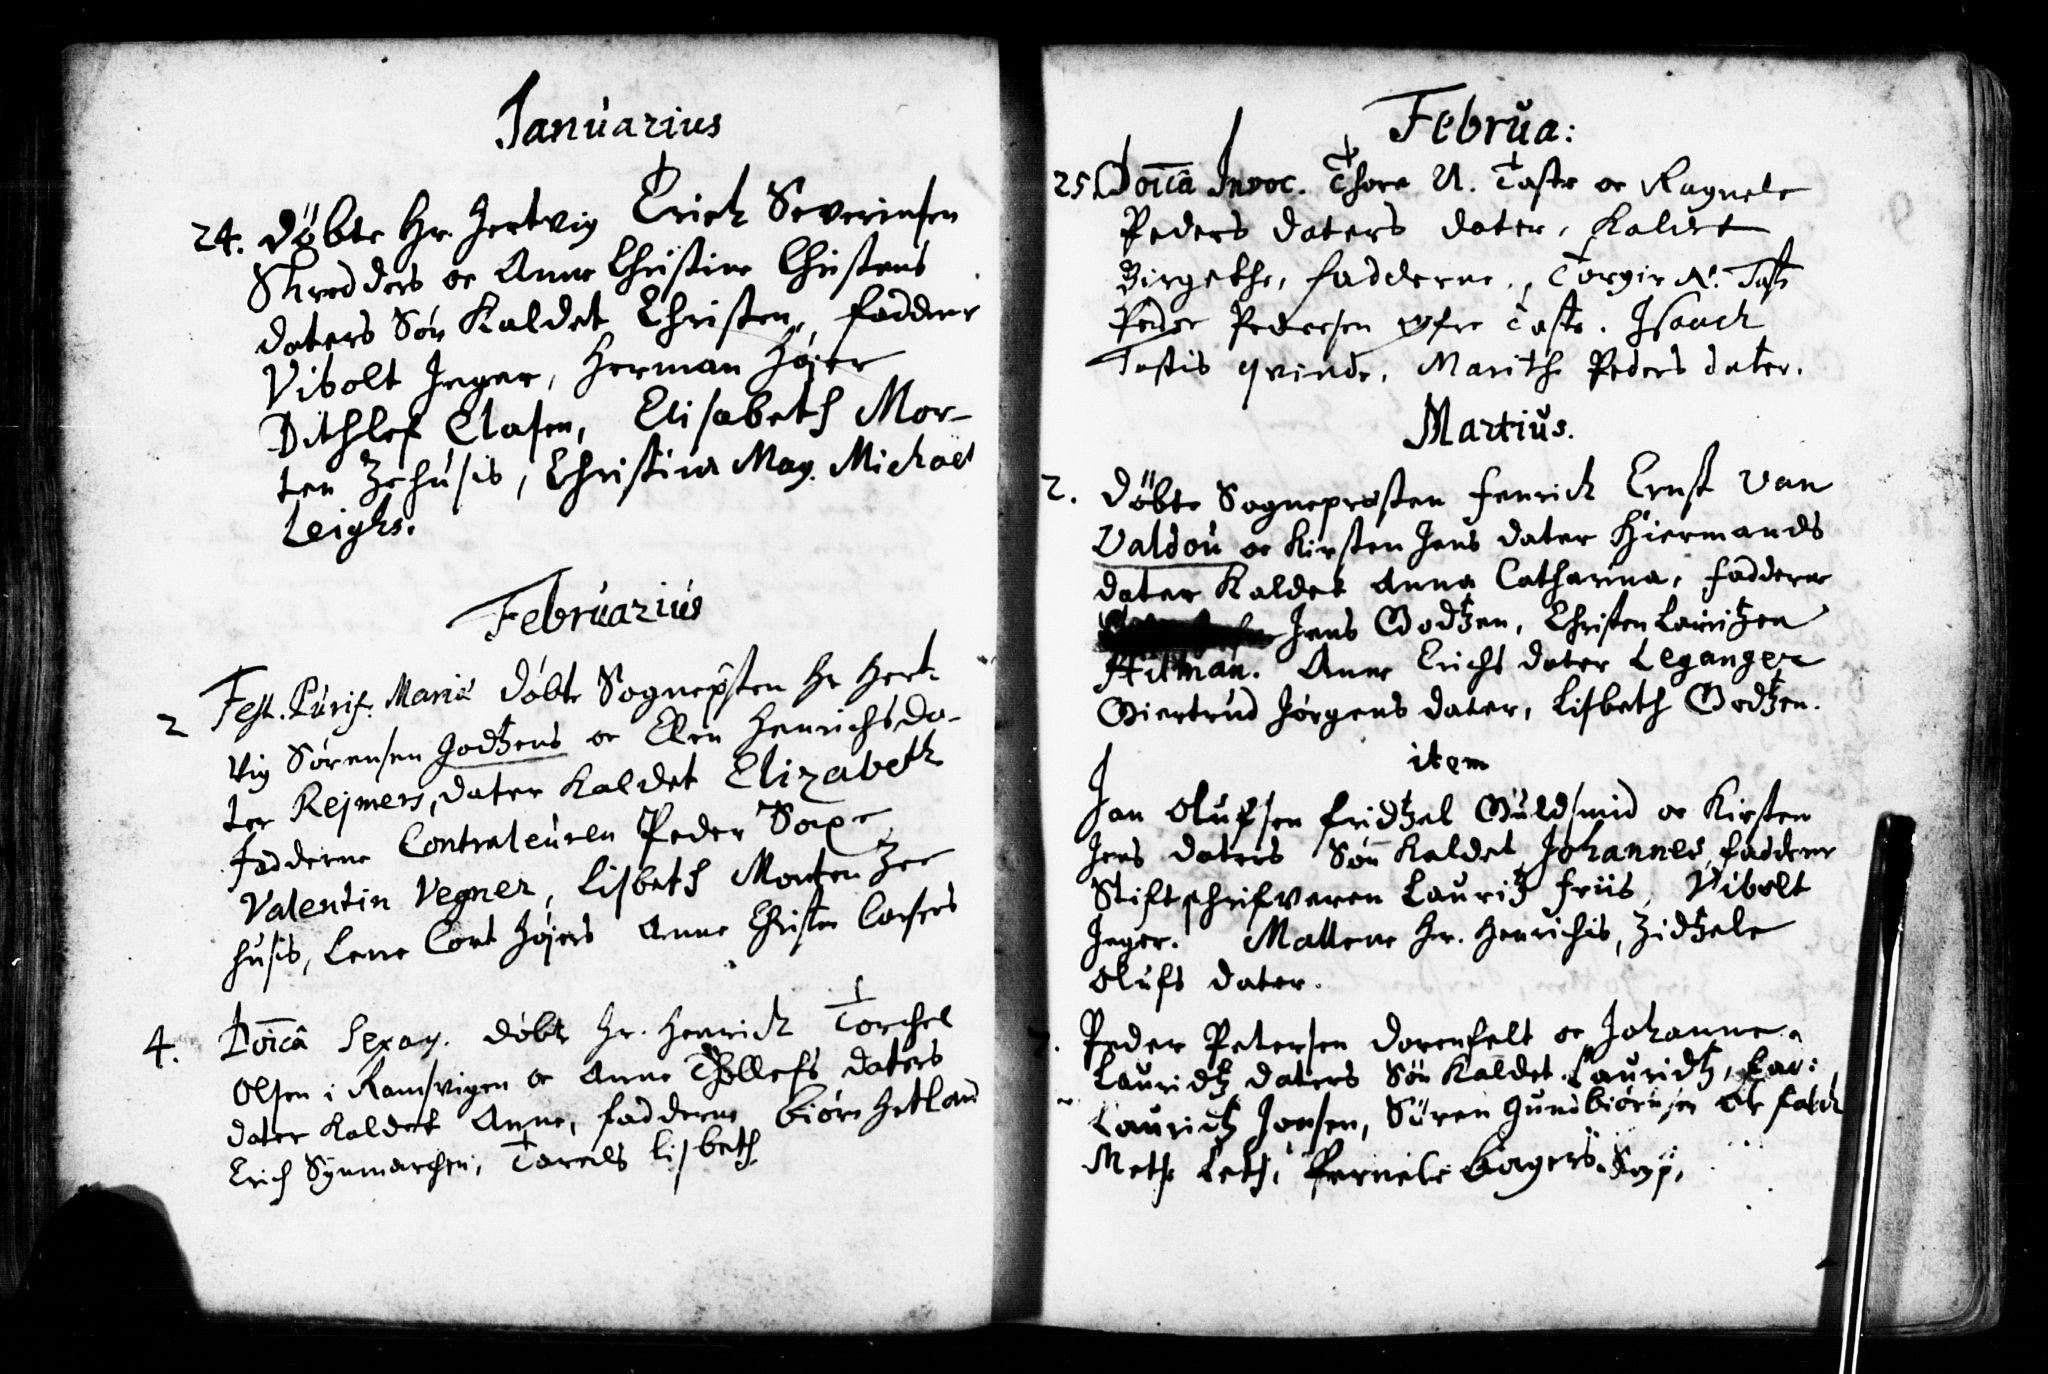 Januarius
24. Döbte Hr. Hertvig Erich Severinsen
Skredders oc Anne Christine Christens
daters Sön Kaldet Christen, fadder
Vibolt Jeger, Herman Højer
Dithlef Clasen, Elisabeth Mor-
ten Zehusis, Christina Mag. Michael
Leighs.
Februarius
2 Fest. Purif. Mariæ Döbte Sognepsten Hr Hert-
vig Sørensen Godtzens oc Ellen Henrichsda-
ter Rejmers, dater Kaldet Elizabeth
fadderne Contraleuren Peder Saxe
Valentin Vegner, Lisbeth Morten Zee
husis, Lene Cort Højers Anne Christen
4. Doïca Sexag. döbt Hr. Henrich Torchel
Olsen i Ramsvigen oc Anne Thollefs daters
dater Kaldet Anne, fadderne Biörn Hetland
Erich Synmarchen, Lisbeth
Februa:
25. Doïca Invoc. Thore N. Taste oc Ragnele
Peders daters dater, Kaldet
Birgethe, fadderne, Torgir N. Taste
Peder Pedersen øfre Taste. Isaach
Tastis qvinde, Marithe Peders dater.
Martius.
2. Döbte Sognepresten fenrich Ernst van
Valdou oc Kirsten Jens dater Hiermands
dater Kaldet Anna Catharina, fadderne
Jens Godtzen, Christen Lauritzen
Hitman. Anne Erichs dater Leganger
Giertrud Jörgens dater, Lisbeth Godtzen.
item
Jan Olufsen fridtzel Guldsmid oc Kirsten
Jens daters Sön Kaldet Johannes, fadderne
Stiftschrifveren Lauritz friis, Vibolt
Jeger. Mallene Hr. Henrichis, Zidtzele
Olufs dater.
Peder Petersen Dorenfelt oc Johanne
Lauridtz daters Sön Kaldet Lauridtz,
Lauritz Jonsen, Sören Gundbiörnsen oc falck
Methe Leth, Pernele Bagers.